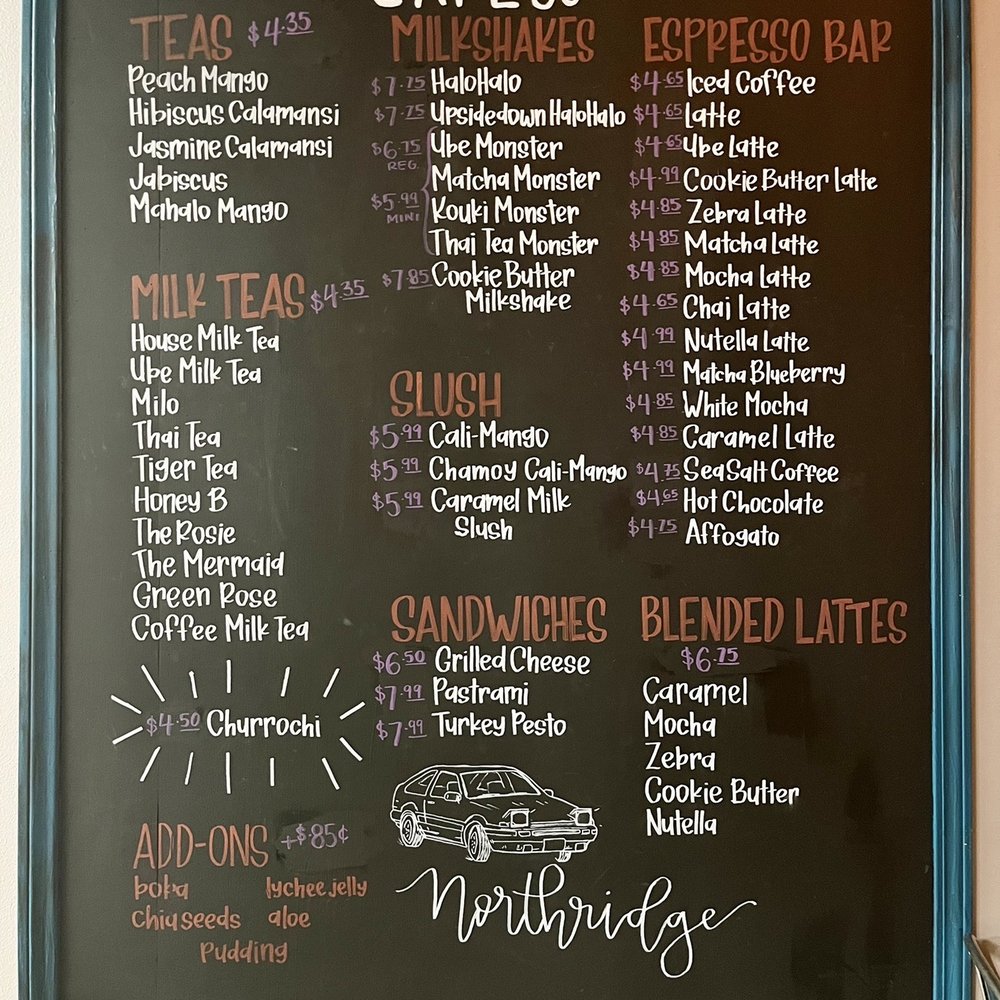 TEAS $4.35
Peach Mango
Hibiscus Calamansi
Jasmine Calamansi
Jabiscus
Mahalo Mango
MILK TEAS $4.35
House Milk Tea
Ube Milk Tea
Milo
Thai Tea
Tiger Tea
Honey B
The Rosie
The Mermaid
Green Rose
Coffee Milk Tea
$4.50 Churrochi
ADD-ONS +$.85¢
boba lychee jelly
Chia seeds aloe
Pudding
MILKSHAKES
$7.75 HaloHalo
$7.75 Upsidedown HaloHalo
$6.75 Ube Monster
REG.
Matcha Monster
$5.99 Kouki Monster
MINI
Thai Tea Monster
$7.85 Cookie Butter
Milkshake
SLUSH
$5.99 Cali-Mango
$5.99 Chamoy Cali-Mango
$5.99 Caramel Milk
Slush
SANDWICHES
$6.50 Grilled Cheese
$7.99 Pastrami
$7.99 Turkey Pesto
Northridge
ESPRESSO BAR
$4.65 Iced Coffee
$4.65 Latte
$4.65 Ube Latte
$4.99 Cookie Butter Latte
$4.85 Zebra Latte
$4.85 Matcha Latte
$4.85 Mocha Latte
$4.65 Chai Latte
$4.99 Nutella Latte
$4.99 Matcha Blueberry
$4.85 White Mocha
$4.85 Caramel Latte
$4.75 Sea Salt Coffee
$4.65 Hot Chocolate
$4.75 Affogato
BLENDED LATTES
$6.75
Caramel
Mocha
Zebra
Cookie Butter
Nutella